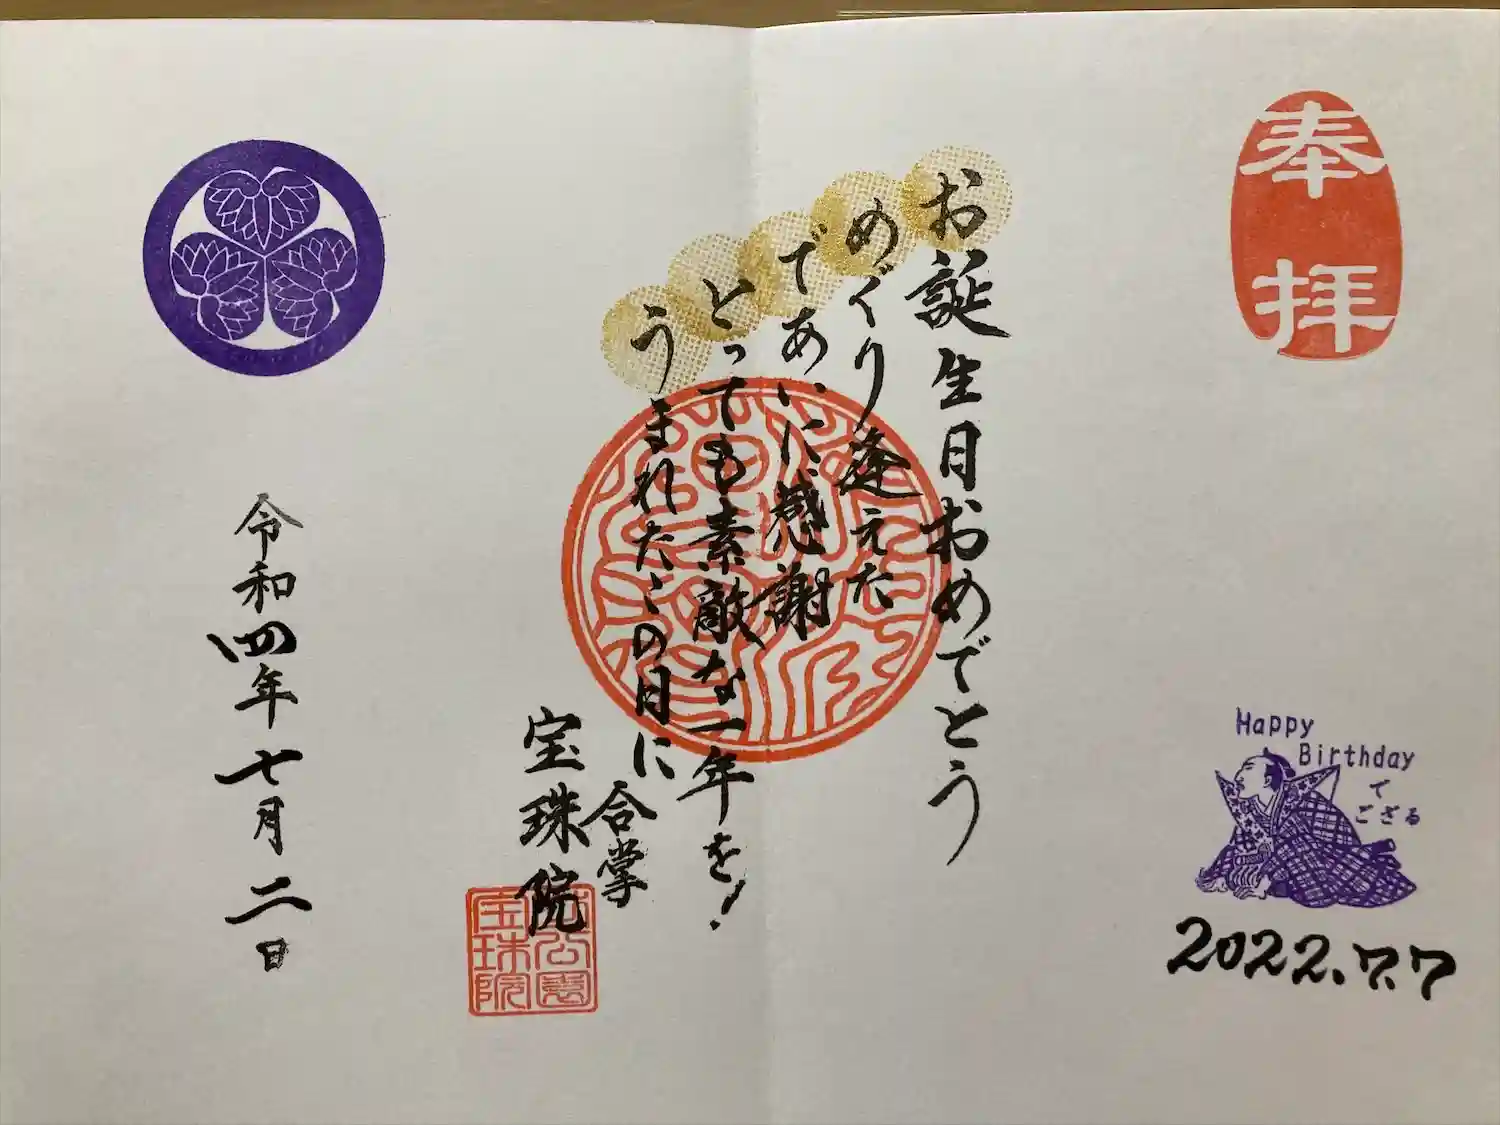 奉拝
Happy
Birthday
で
ござる
2022.7.7
お誕生日おめでとう
めぐり逢えた
であいに感謝
とっても素敵な一年を!
うまれたこの日に
合掌
宝珠院
宝珠院
令和四年七月二日